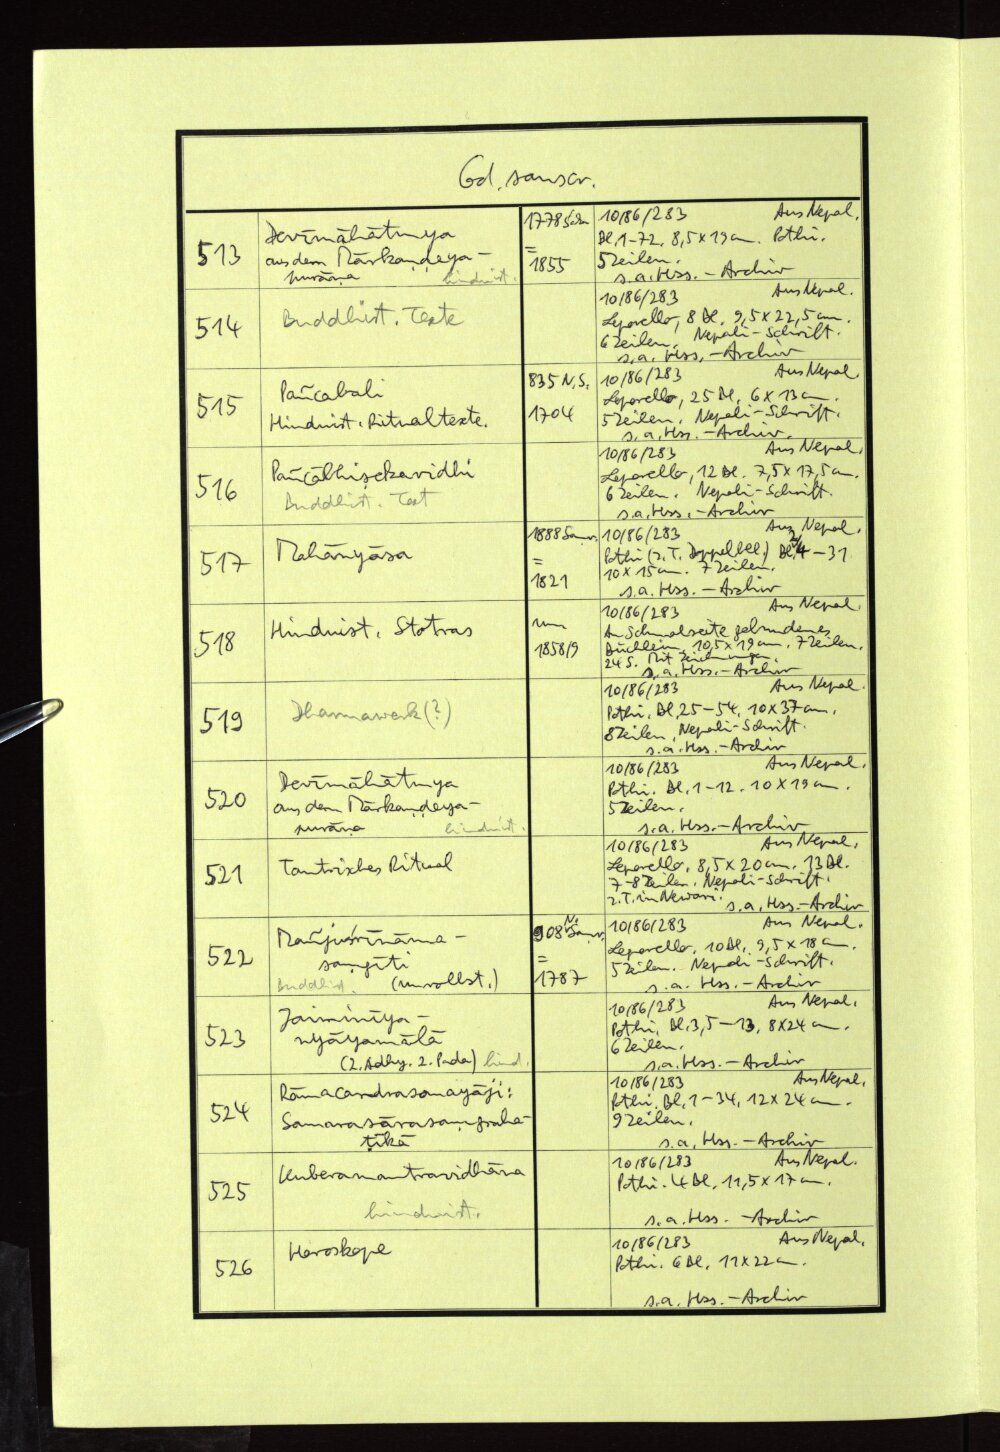 Cod. sanscr.
513
Devīmāhātmya
aus dem Mārkaṇḍeya-
purāṇa hinduist.
1778 Śāka
=
1855
10/86/283 Aus Nepal.
Bl. 1-72, 8,5 x 19 cm. Pothi.
5 Zeilen.
s. a. Hss. - Archiv
514
Buddhist. Texte
10/86/283 Aus Nepal.
Leporello, 8 Bl. 9,5 x 22,5 cm.
6 Zeilen. Nepali-Schrift.
s. a. Hss. - Archiv
515
Pañcabali
Hinduist. Ritualtexte.
835 N.S.
1704
10/86/283 Aus Nepal.
Leporello, 25 Bl. 6 x 13 cm.
5 Zeilen, Nepali-Schrift.
s. a. Hss. - Archiv.
516
Pañcābhiṣekavidhi
Buddhist. Text
10/86/283 Aus Nepal.
Leporello, 12 Bl. 7,5 x 17,5 cm.
6 Zeilen. Nepali-Schrift.
s. a. Hss. - Archiv
517
Mahānyāsa
1888 Saṃv.
=
1821
10/86/283 Aus Nepal.
Pothi (z. T. Doppelbl.) Bl. 4-31
10 x 15 cm. 7 Zeilen.
s. a. Hss. - Archiv
518
Hinduist. Stotras
um
1858/9
10/86/283 Aus Nepal.
An Schmalseite gebundenes
Büchlein, 10,5 x 19 cm. 7 Zeilen.
24 S. Mit Zeichnungen.
s. a. Hss. - Archiv
519
Dharmawerk (?)
10/86/283 Aus Nepal.
Pothi. Bl. 25-54, 10 x 37 cm.
8 Zeilen, Nepali-Schrift.
s. a. Hss. - Archiv
520
Devīmāhātmya
aus dem Mārkaṇḍeya-
purāṇa hinduist.
10/86/283 Aus Nepal.
Pothi. Bl. 1-12. 10 x 19 cm.
5 Zeilen.
s. a. Hss. - Archiv
521
Tantrisches Ritual
10/86/283 Aus Nepal.
Leporello, 8,5 x 20 cm. 13 Bl.
7-8 Zeilen. Nepali-Schrift.
z. T. in Newari. s. a. Hss. - Archiv
522
Mañjuśrīnāma-
saṃgīti
Buddhist. (unvollst.)
908 N. Saṃv.
=
1787
10/86/283 Aus Nepal.
Leporello, 10 Bl, 9,5 x 18 cm.
5 Zeilen. Nepali-Schrift.
s. a. Hss. - Archiv
523
Jaiminīya-
nyāyamālā
(2. Adhy. 2. Pada) hind.
10/86/283 Aus Nepal.
Pothi, Bl. 3, 5-13, 8 x 24 cm.
6 Zeilen.
s. a. Hss. - Archiv
524
Rāmacandrasomayāji:
Samarasārasaṃgraha-
ṭīkā
10/86/283 Aus Nepal.
Pothi. Bl. 1-34, 12 x 24 cm.
9 Zeilen.
s. a. Hss. - Archiv
525
Kuberamantravidhāna
hinduist.
10/86/283 Aus Nepal.
Pothi. 4 Bl, 11,5 x 17 cm.
s. a. Hss. - Archiv
526
Horoskope
10/86/283 Aus Nepal.
Pothi. 6 Bl. 11 x 22 cm.
s. a. Hss. - Archiv